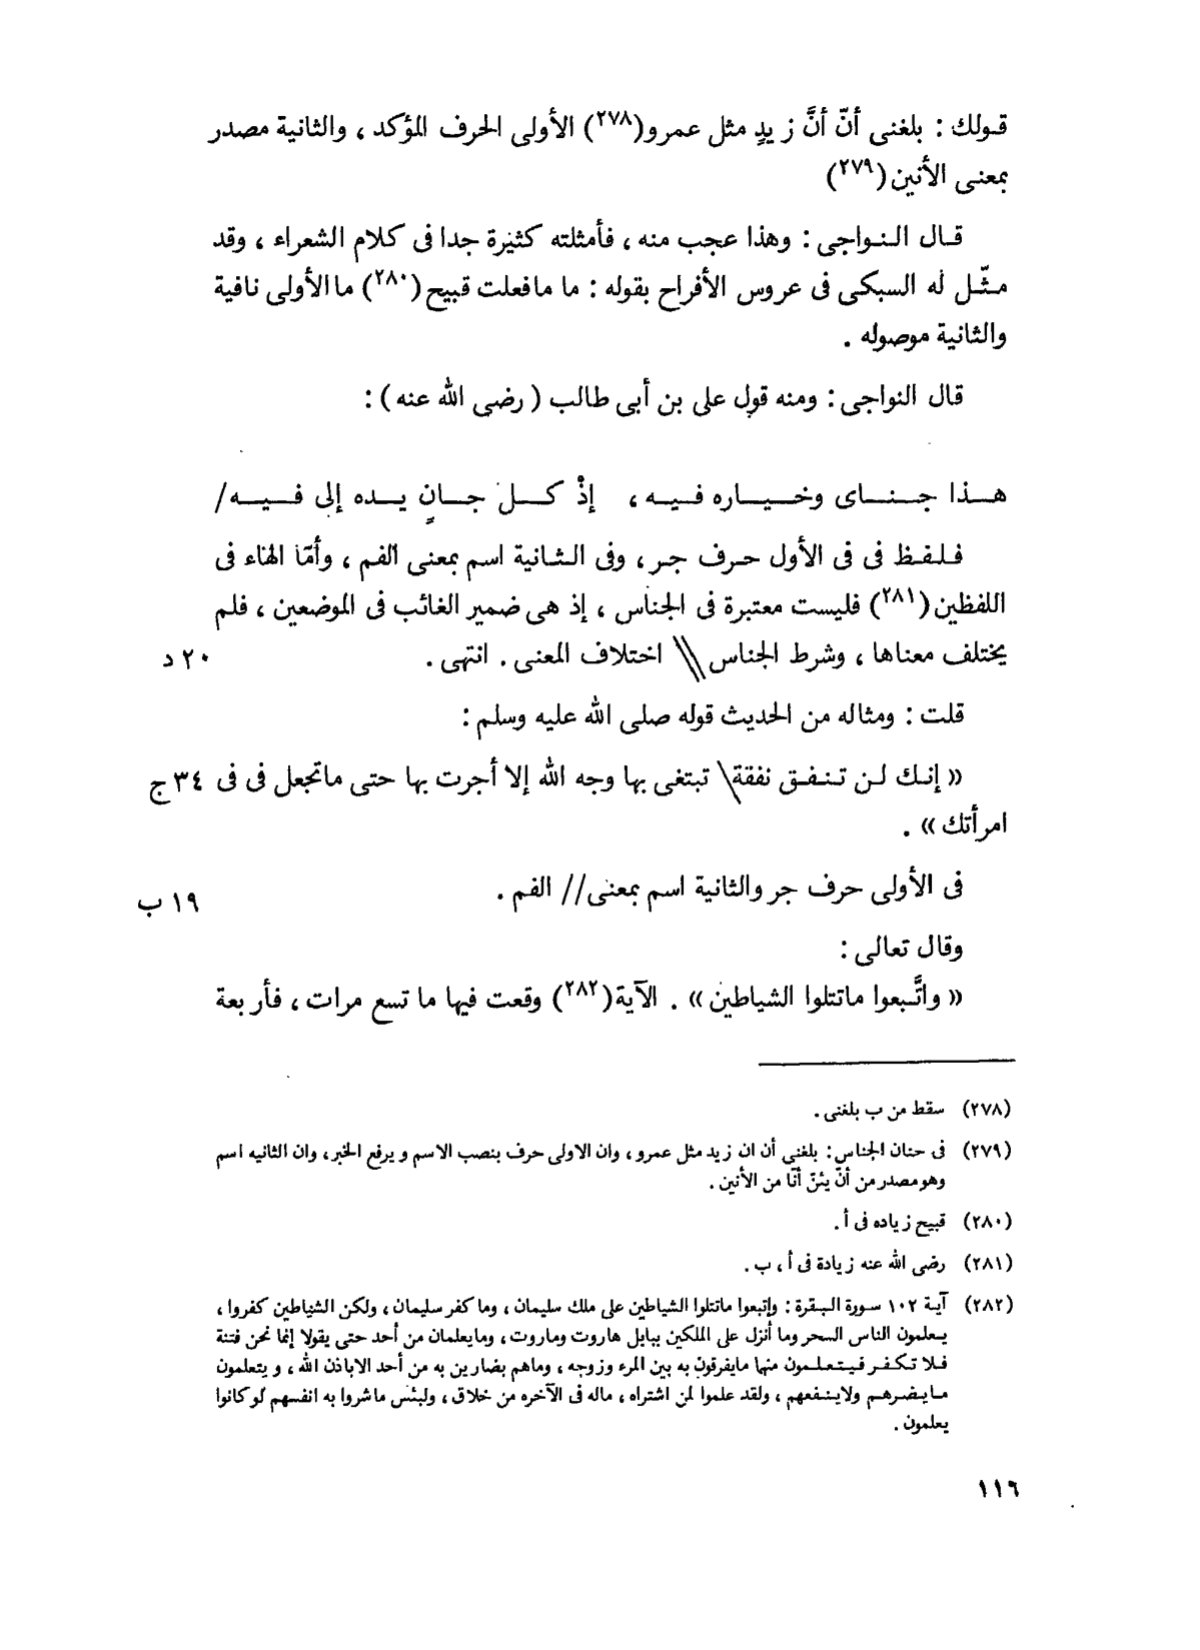 قولك : بلغنى أنّ أنَّ زيدٍ مثل عمرو(٢٧٨) الأولى الحرف المؤكد ، والثانية مصدر
بمعنى الأنين(٢٧٩)
قال النواجى : وهذا عجب منه ، فأمثلته كثيرة جدا فى كلام الشعراء ، وقد
مثّل له السبكى فى عروس الأفراح بقوله : ما مافعلت قبيح(٢٨٠) ما الأولى نافية
والثانية موصوله .
قال النواجى : ومنه قول على بن أبى طالب ( رضى الله عنه ) :
هذا جناى وخياره فيه ، إذْ كل جانٍ يده إلى فيه/
فلفظ فى فى الأول حرف جر ، وفى الثانية اسم بمعنى الفم ، وأمّا الهاء فى
اللفظين(٢٨١) فليست معتبرة فى الجناس ، إذ هى ضمير الغائب فى الموضعين ، فلم
يختلف معناها ، وشرط الجناس \\ اختلاف المعنى . انتهى . ٢٠ د
قلت : ومثاله من الحديث قوله صلى الله عليه وسلم :
« إنك لن تنفق نفقة\ تبتغى بها وجه الله إلا أجرت بها حتى ماتجعل فى فى ٣٤ ج
امرأتك » .
فى الأولى حرف جر والثانية اسم بمعنى// الفم . ١٩ ب
وقال تعالى :
« واتَّبعوا ماتتلوا الشياطين » . الآية(٢٨٢) وقعت فيها ما تسع مرات ، فأربعة
(٢٧٨) سقط من ب بلغنى .
(٢٧٩) فى حنان الجناس : بلغنى أن ان زيد مثل عمرو ، وان الاولى حرف بنصب الاسم ويرفع الخبر ، وان الثانيه اسم
وهو مصدر من أنّ يئنّ أنّا من الأنين .
(٢٨٠) قبيح زياده فى أ .
(٢٨١) رضى الله عنه زيادة فى أ ، ب .
(٢٨٢) آية ١٠٢ سورة البقرة : وإتبعوا ماتتلوا الشياطين على ملك سليمان ، وما كفر سليمان ، ولكن الشياطين كفروا ،
يعلمون الناس السحر وما أنزل على الملكين ببابل هاروت وماروت ، ومايعلمان من أحد حتى يقولا إنما نحن فتنة
فلا تكفر فيتعلمون منها مايفرقون به بين المرء وزوجه ، وماهم بضارين به من أحد الاباذن الله ، ويتعلمون
مايضرهم ولاينفعهم ، ولقد علموا لمن اشتراه ، ماله فى الآخره من خلاق ، ولبئس ماشروا به انفسهم لوكانوا
يعلمون .
١١٦